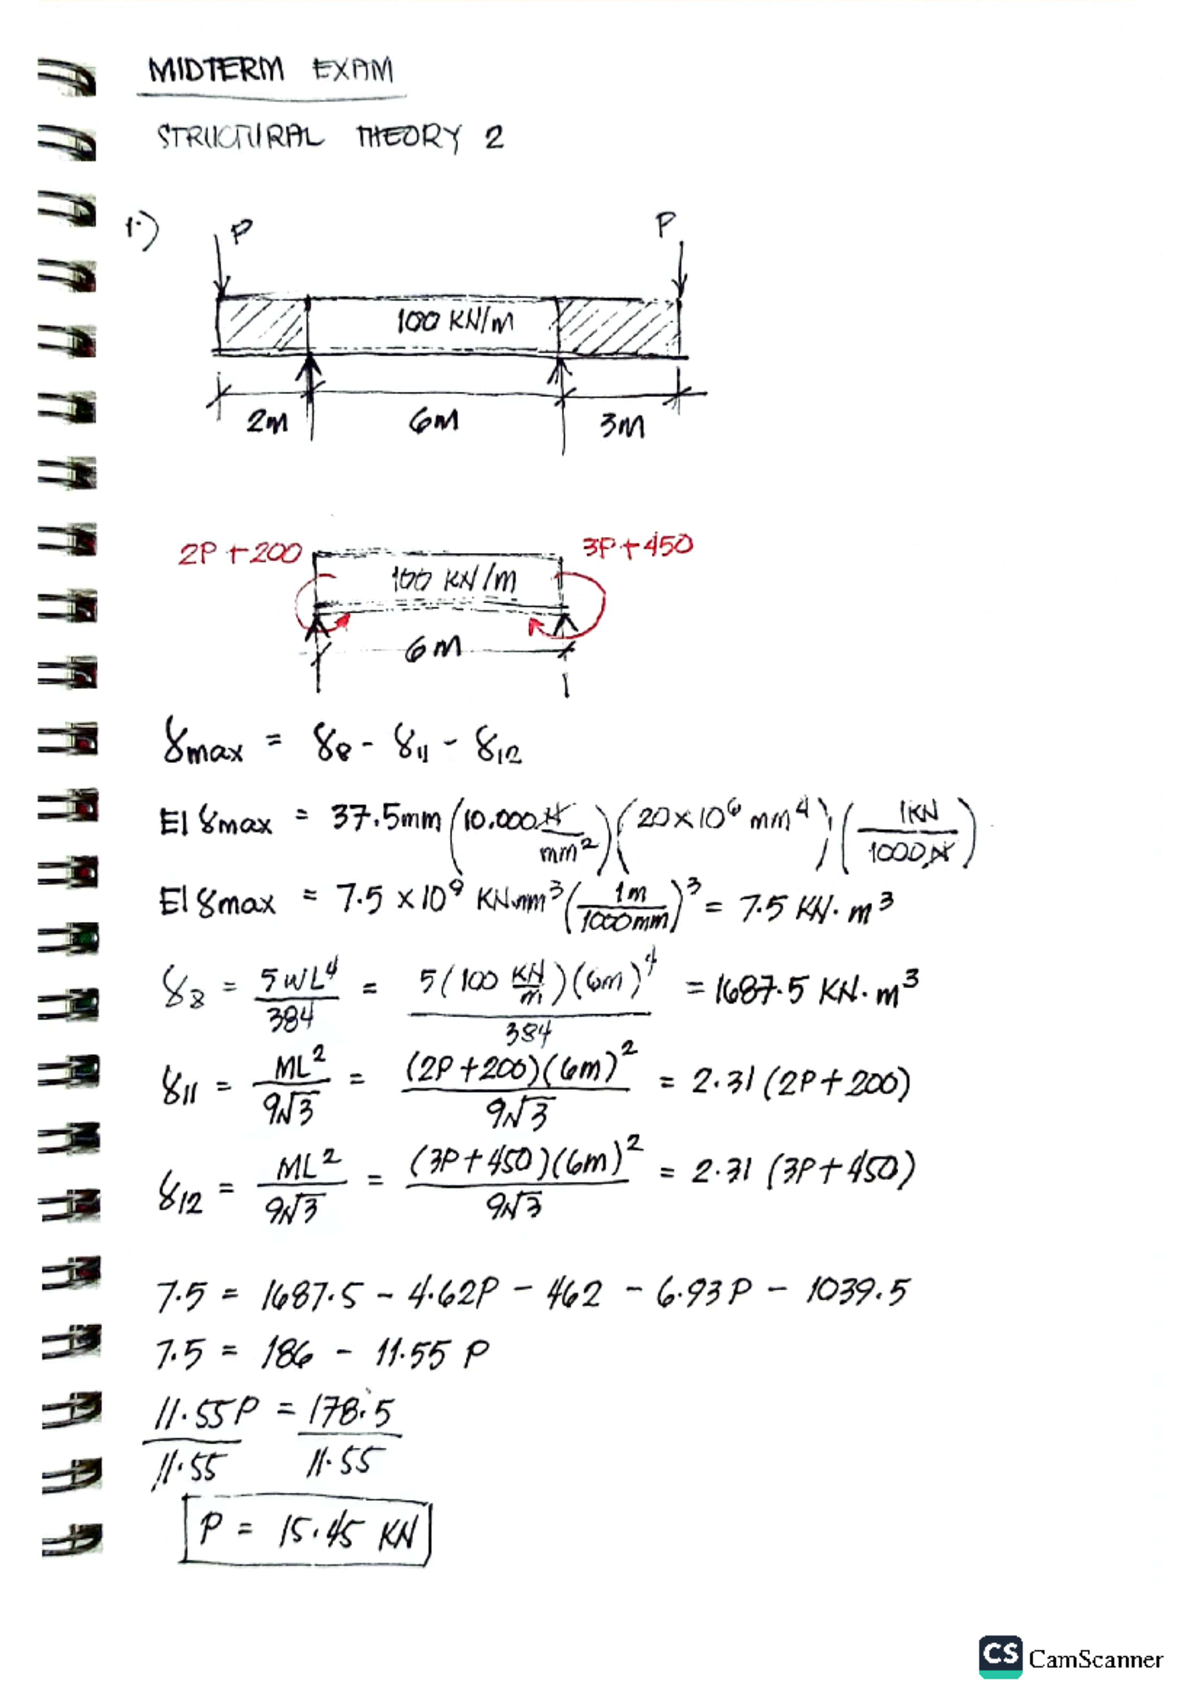 MIDTERM EXAM
STRUCTURAL THEORY 2
1.)
P P
100 KN/m
2m 6m 3m
2P+200 3P+450
100 KN/m
6m
δmax = δ8 - δ11 - δ12
EIδmax = 37.5mm (10,000 N/mm²)(20×10⁶ mm⁴)(1KN/1000N)
EIδmax = 7.5×10⁹ KN.mm³ (1m/1000mm)³ = 7.5 KN.m³
δ8 = 5WL⁴/384 = 5(100 KN/m)(6m)⁴/384 = 1687.5 KN.m³
δ11 = ML²/9√3 = (2P+200)(6m)²/9√3 = 2.31 (2P+200)
δ12 = ML²/9√3 = (3P+450)(6m)²/9√3 = 2.31 (3P+450)
7.5 = 1687.5 - 4.62P - 462 - 6.93P - 1039.5
7.5 = 186 - 11.55 P
11.55P = 178.5
11.55 11.55
P = 15.45 KN
CS CamScanner